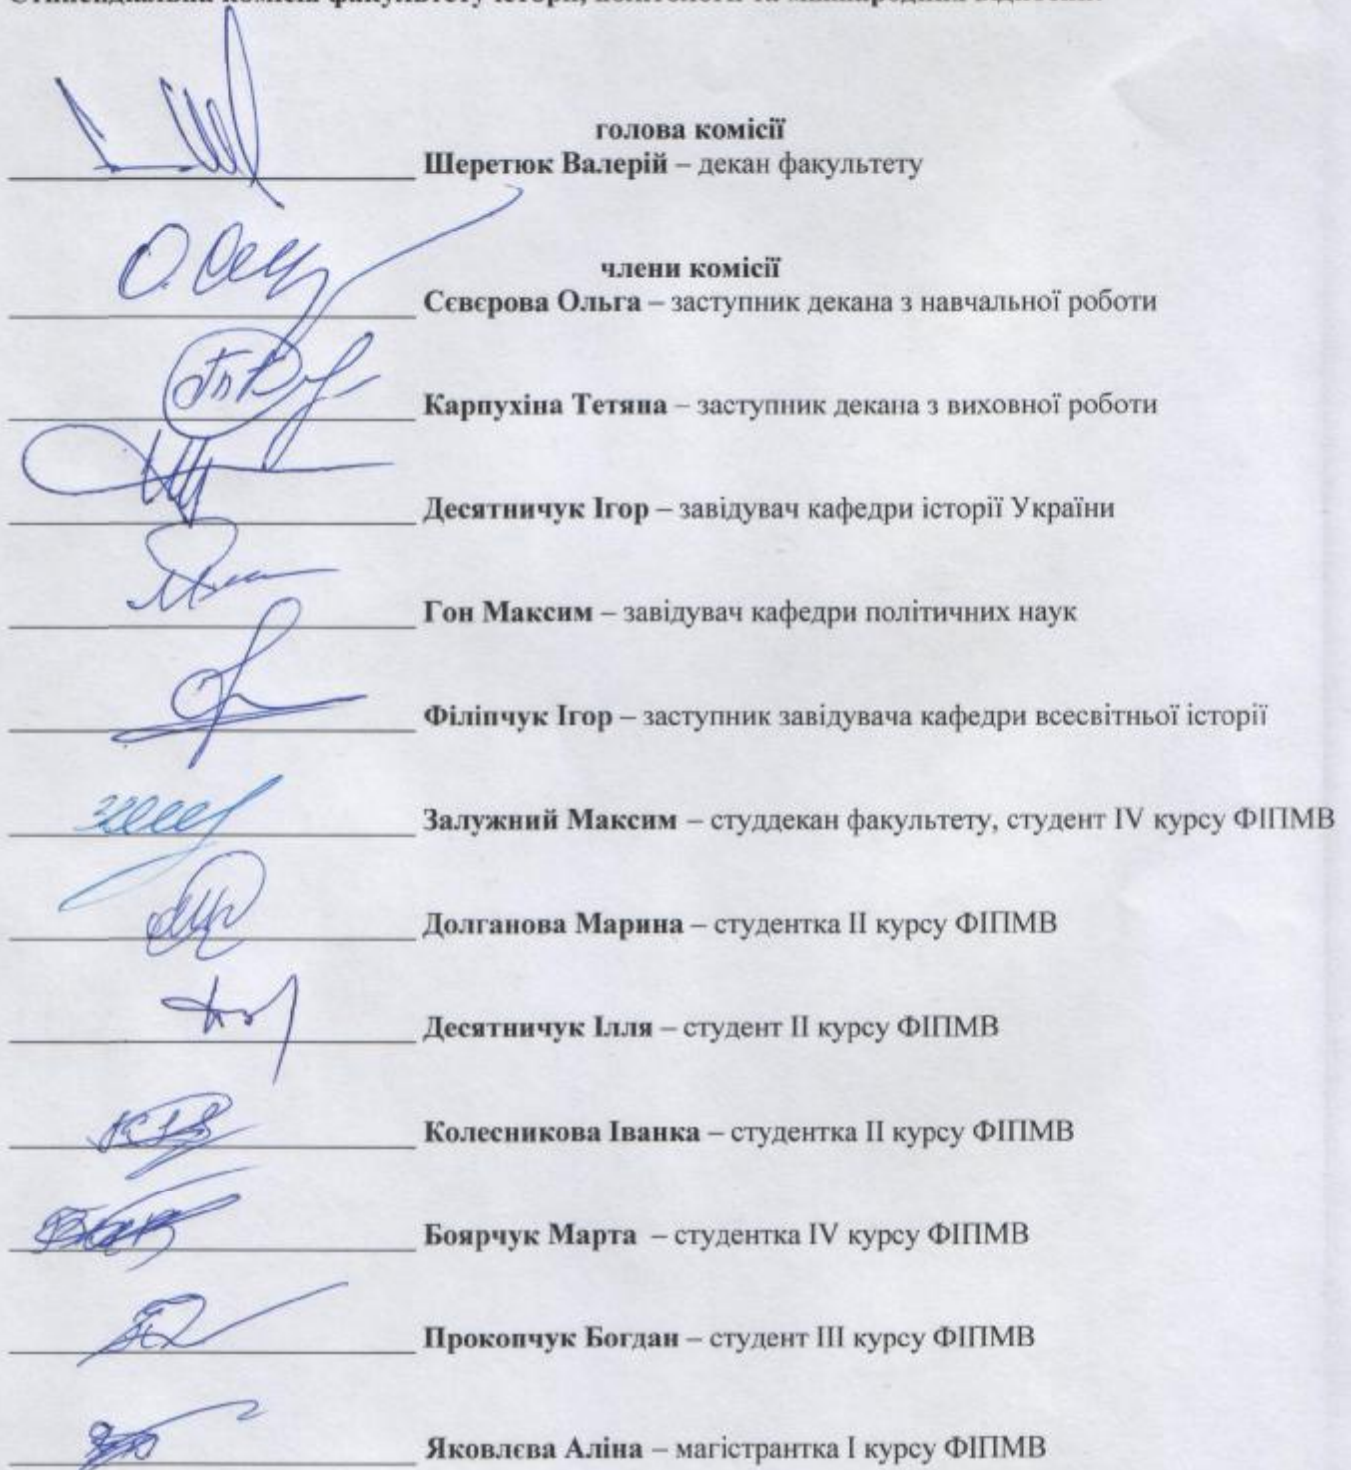 Стипендіальна комісія факультету історії, політології та міжнародних відносин:
голова комісії
Шеретюк Валерій – декан факультету
О. Сєв
члени комісії
Сєвєрова Ольга – заступник декана з навчальної роботи
Карпухіна Тетяна – заступник декана з виховної роботи
Десятничук Ігор – завідувач кафедри історії України
Гон Максим – завідувач кафедри політичних наук
Філіпчук Ігор – заступник завідувача кафедри всесвітньої історії
Залужний Максим – студдекан факультету, студент IV курсу ФІПМВ
Долганова Марина – студентка II курсу ФІПМВ
Десятничук Ілля – студент II курсу ФІПМВ
Колесникова Іванка – студентка II курсу ФІПМВ
Боярчук Марта – студентка IV курсу ФІПМВ
Прокопчук Богдан – студент III курсу ФІПМВ
Яковлєва Аліна – магістрантка I курсу ФІПМВ